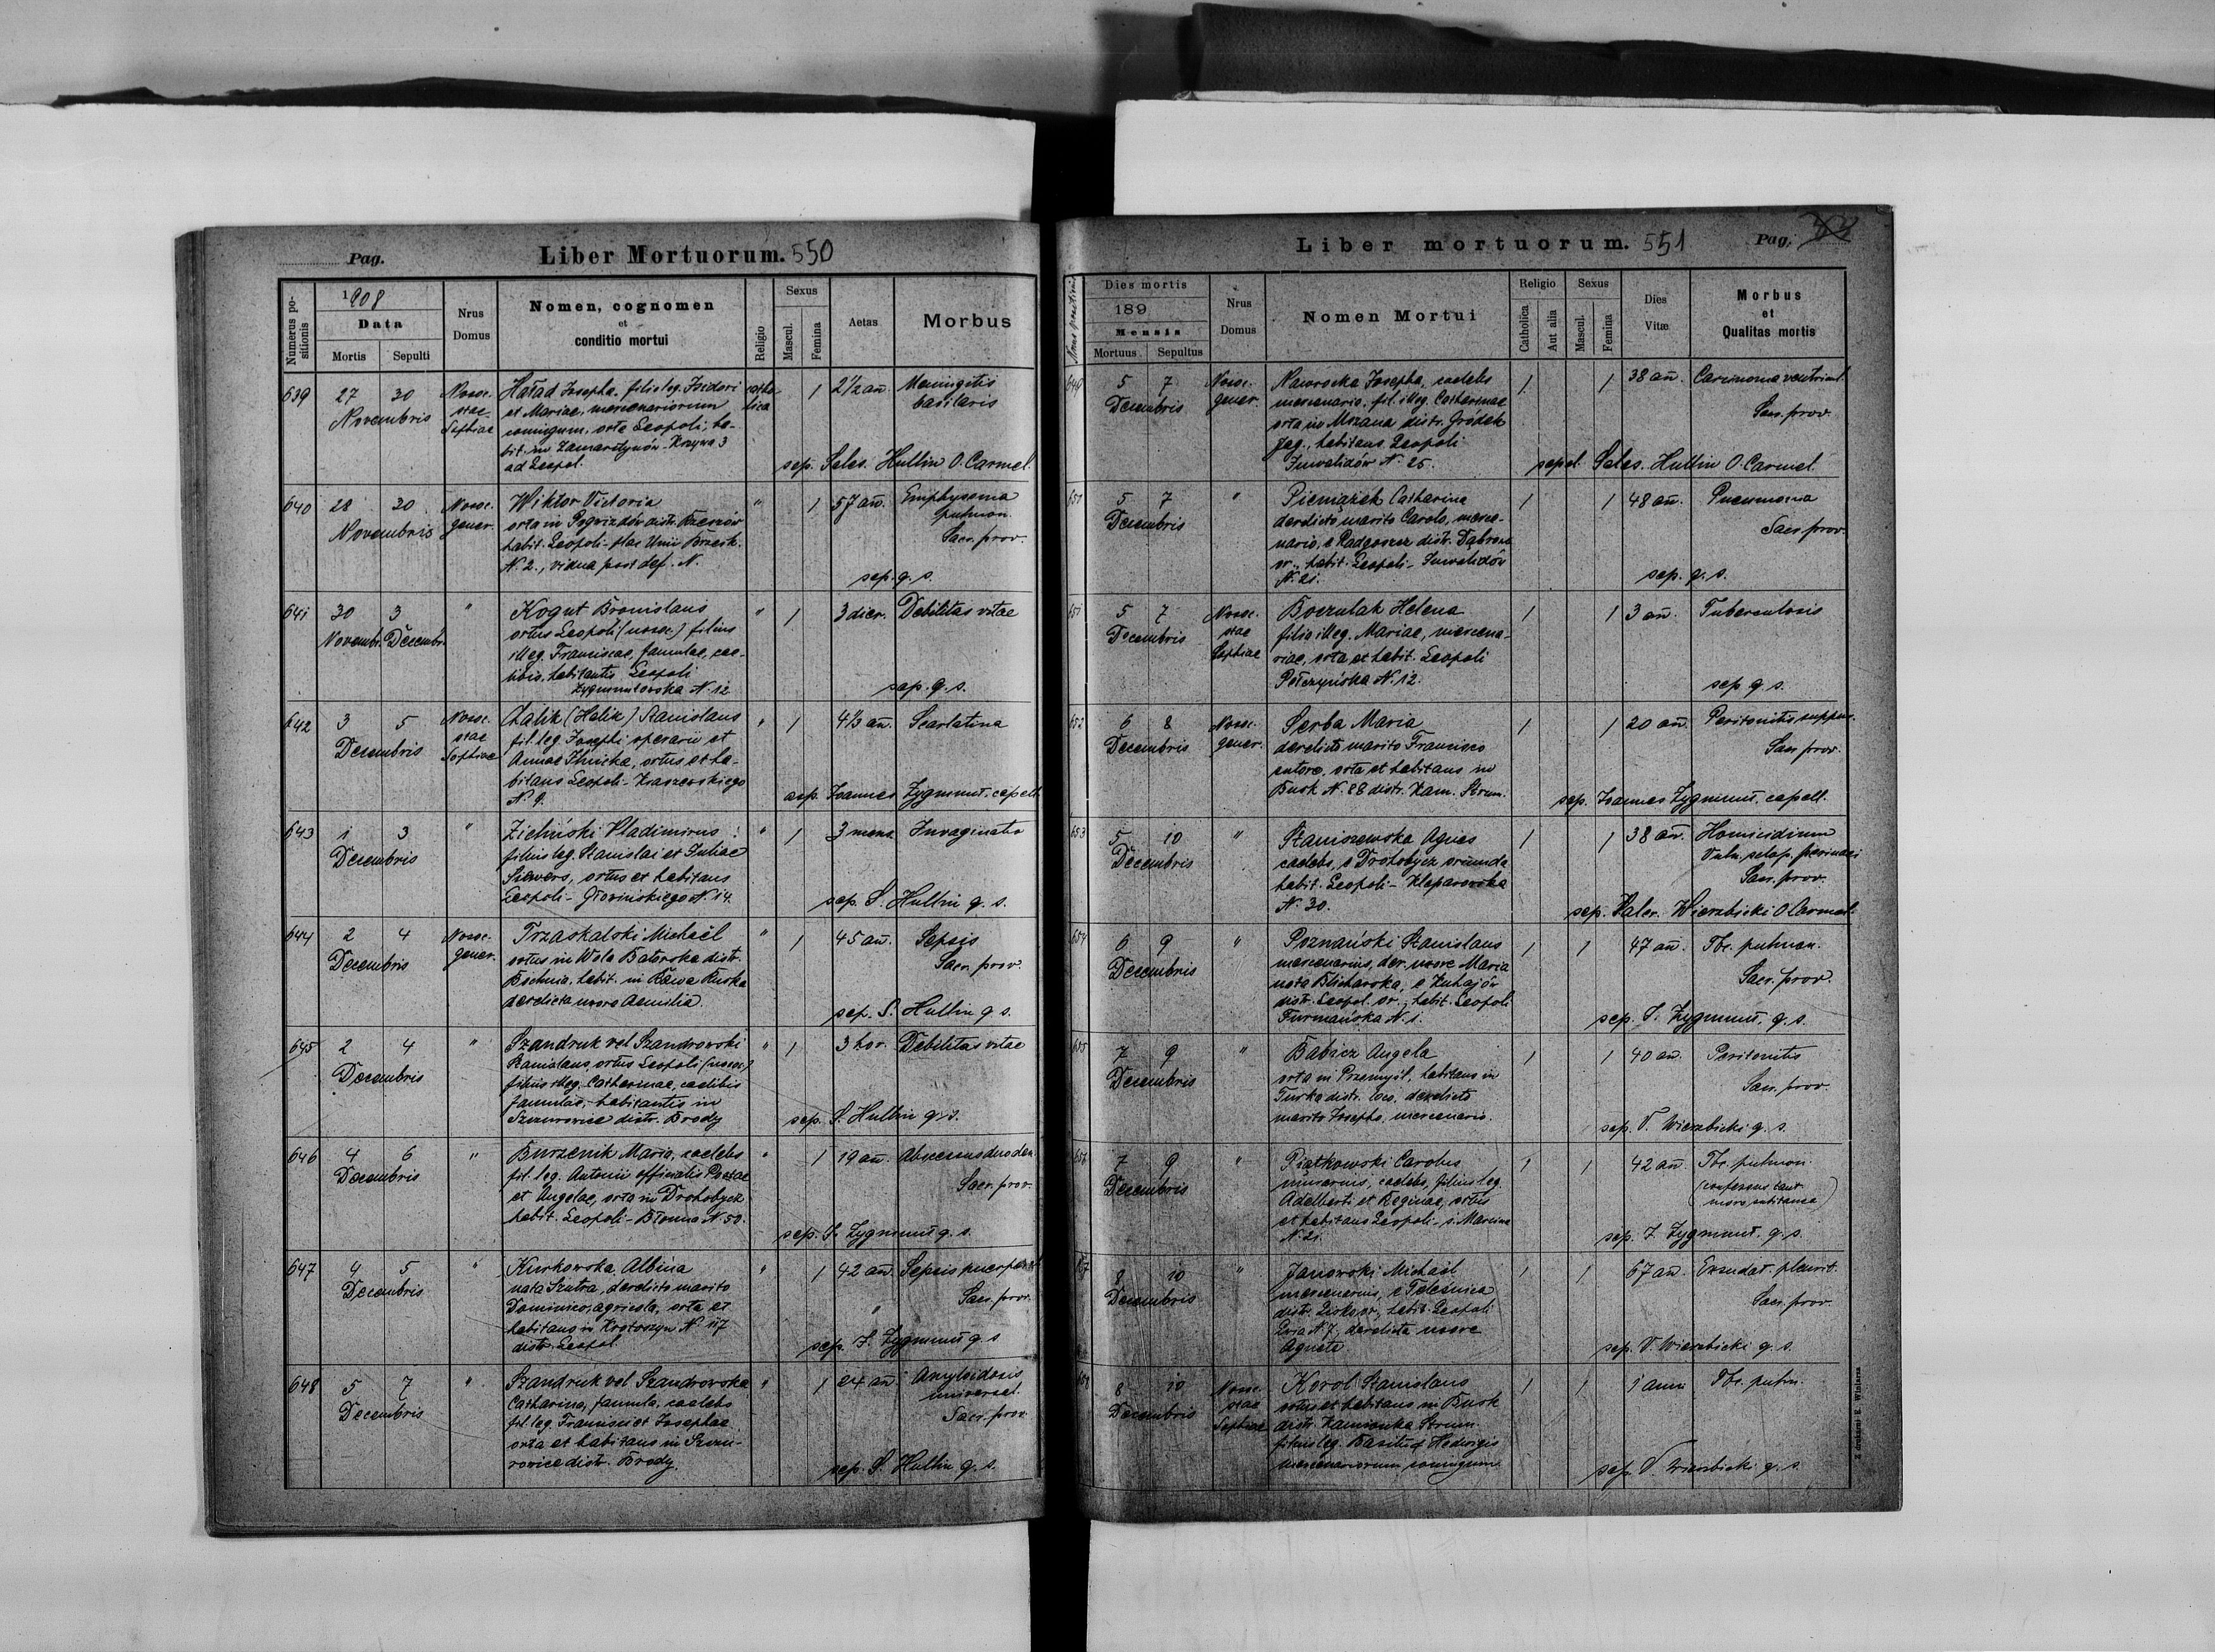 Pag.
Liber Mortuorum. 550
Numerus positionis
1908
Data
Mortis
Sepulti
Nrus
Domus
Nomen, cognomen
et
conditio mortui
Religio
Sexus
Mascul.
Femina
Aetas
Morbus
639 27 30 Nosoc. Haład Josepha, filia leg. Isidori catho- 1 2 1/2 añ. Meningitis
Novembris stae et Mariae, mercenariorum lica basilaris
Sophiae conjugum, orta Leopoli, ha-
bit. in Zamarstynów - Krzywa 3
ad Leopol. sep. Seles. Hullin O. Carmel.
640 28 30 Nosoc. Wiktor Victoria " 1 57 añ. Emphysema
Novembris gener. orta in Pogwizdów distr. Rzeszów pulmon.
habit. Leopoli - plac Unii Brzesk. Sacr. prov.
N. 2., vidua post def. N.
sep. q. s.
641 30 3 " Kogut Bronislaus " 1 3 dier. Debilitas vitae
Novembr. Decembr. ortus Leopoli (nosoc) filius
illeg. Franciscae, famulae, cae-
libis, habitantis Leopoli
Zygmuntowska N. 12 sep. q. s.
642 3 5 Nosoc. Chalik (Halik) Stanislaus " 1 4 1/3 añ. Scarlatina
Decembris stae fil. leg. Josephi operarii et
Sophiae Annae, ortus et ha-
bitans Leopoli - Kraszewskiego
N. 9. sep. Joannes Zygmunt. capell.
643 1 3 " Zieliński Vladimirus " 1 3 mens. Invaginatio
Decembris filius leg. Stanislai et Juliae
Siewers, ortus et habitans
Leopoli - Głowińskiego N. 14. sep. S. Hullin q. s.
644 2 4 Nosoc. Trzaskalski Michaël " 1 45 añ. Sepsis
Decembris gener. ortus in Wola Batorska distr. Sacr. prov.
Bochnia, habit. in Rawa Ruska
derelicta uxore Aemilia. sep. S. Hullin q. s.
645 2 4 " Szandruk vel Szandrowski " 1 3 hor. Debilitas vitae
Decembris Stanislaus, ortus Leopoli (nosoc)
filius illeg. Catharinae, caelibis
famulae, habitantis in
Szczurowice distr. Brody sep. S. Hullin q. s.
646 4 6 " Burzenik Maria, caelebs " 1 19 añ. Abscessus duoden.
Decembris fil. leg. Antonii officialis Postae Sacr. prov.
et Angelae, orta in Drohobycz
habit. Leopoli - Błonna N. 50. sep. J. Zygmunt q. s.
647 4 5 " Kurkowska Albina " 1 42 añ. Sepsis puerperal.
Decembris nata Szutra, derelicto marito Sacr. prov.
Dominico, agricola, orta et
habitans in Krotoszyn N. 117
distr. Leopol. sep. J. Zygmunt q. s
648 5 7 " Szandruk vel Szandrowska " 1 24 añ Amyloidosis
Decembris Catharina, famula, caelebs universal.
fil. leg. Francisci et Josephae Sacr. prov.
orta et habitans in Szczu-
rowice distr. Brody. sep. S. Hullin q. s.
Liber mortuorum. 551
Pag.
Dies mortis
189
Mensis
Mortuus
Sepultus
Nrus
Domus
Nomen Mortui
Religio
Catholica
Aut alia
Sexus
Mascul.
Femina
Dies
Vitæ
Morbus
et
Qualitas mortis
649 5 7 Nosoc. Nawrocka Josepha, caelebs 1 1 38 añ. Carcinoma ventricul.
Decembris gener. mercenaria, fil. illeg. Catharinae Sacr. prov.
orta in Mszana distr. Gródek
Jag., habitans Leopoli
Inwalidów N. 25. sepel. Seles. Hullin O. Carmel.
5 7 " Pieniążek Catharina 1 1 48 añ. Pneumonia
Decembris derelicto marito Carolo, merce- Sacr. prov.
nario, e Radgoszcz distr. Dąbrowa
or., habit. Leopoli - Inwalidów
N. 21. sep. q. s.
651 5 7 Nosoc. Boczulak Helena 1 1 3 añ. Tuberculosis
Decembris stae filia illeg. Mariae, mercena-
Sophiae riae, orta et habit. Leopoli
Pełczyńska N. 12. sep. q. s.
652 6 8 Nosoc. Serba Maria 1 1 20 añ. Peritonitis suppur.
Decembris gener. derelicto marito Francisco Sacr. prov.
sutore, orta et habitans in
Busk N. 88 distr. Kam. Strum. sep. Joannes Zygmunt, capell.
653 5 10 " Staniszewska Agnes 1 1 38 añ. Homicidium
Decembris caelebs, e Drohobycz oriunda Sacr. prov.
habit. Leopoli - Kleparowska
N. 30. sep. Valer. Wierzbicki O. Carmel.
654 6 9 " Poznański Stanislaus 1 1 47 añ. Tbc. pulmon.
Decembris mercenarius, der. uxore Maria Sacr. prov.
nata Blicharska, e Kuhajów
distr. Leopol. or., habit. Leopoli
Furmańska N. 1. sep. J. Zygmunt, q. s.
655 7 9 " Babicz Angela 1 1 40 añ. Peritonitis
Decembris orta in Przemyśl, habitans in Sacr. prov.
Turka distr. loco, derelicto
marito Josepho, mercenario. sep. V. Wierzbicki q. s.
7 9 " Piątkowski Carolus 1 1 42 añ. Tbc. pulmon.
Decembris murarius, caelebs, filius leg. (confessus tant.
Adalberti et Reginae, ortus mors subitanea)
et habitans Leopoli - ś. Marcina
N. 21. sep. J. Zygmunt. q. s.
8 10 " Janowski Michaël 1 1 67 añ. Exsudat. pleurit.
Decembris mercenarius, e Teleśnica Sacr. prov.
distr. Lisko or., habit. Leopoli
N. 7, derelicta uxore
Agnete sep. V. Wierzbicki q. s.
8 10 Nosoc. Korol Stanislaus 1 1 1 anni Tbc. pulm.
Decembris stae ortus et habitans in Busk
Sophiae distr. Kamionka Strum.
filius leg. Basilii et Hedvigis
mercenariorum conjugum. sep. V. Wierzbicki q. s.
Z drukarni E. Winiarza